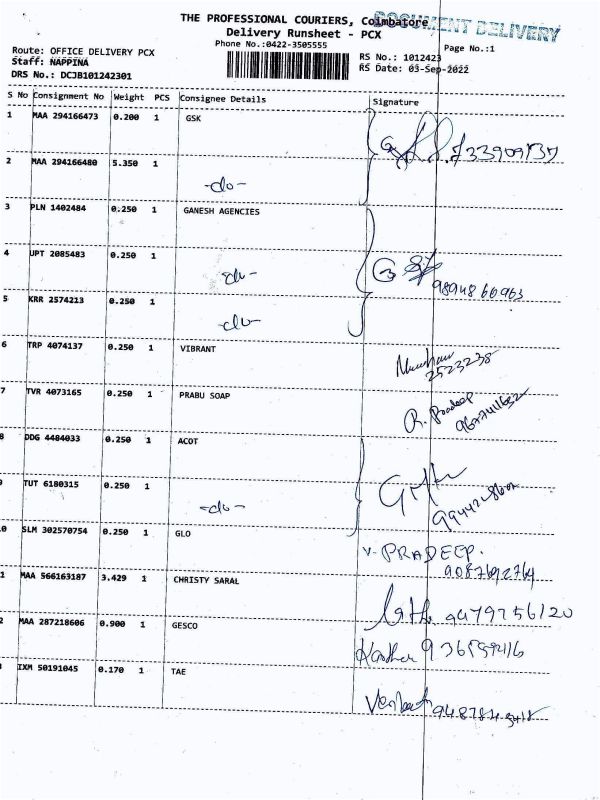 THE PROFESSIONAL COURIERS, Coimbatore
DOCUMENT DELIVERY
Delivery Runsheet - PCX
Phone No.:0422-3505555
Page No.:1
Route: OFFICE DELIVERY PCX
RS No.: 1012423
Staff: NAPPINA
RS Date: 03-Sep-2022
DRS No.: DCJB101242301
S No Consignment No Weight PCS Consignee Details Signature
1 MAA 294166473 0.200 1 GSK
2 MAA 294166480 5.350 1
-do-
3 PLN 1402484 0.250 1 GANESH AGENCIES
4 UPT 2085483 0.250 1
-do-
9894866963
5 KRR 2574213 0.250 1
-do-
6 TRP 4074137 0.250 1 VIBRANT
2523238
7 TVR 4073165 0.250 1 PRABU SOAP
R. Pradeep
8 DDG 4484033 0.250 1 ACOT
9 TUT 6180315 0.250 1
-do-
0 SLM 302570754 0.250 1 GLO
V. PRADEEP.
9087692764
1 MAA 566163187 3.429 1 CHRISTY SARAL
9479756120
2 MAA 287218606 0.900 1 GESCO
IXM 50191045 0.170 1 TAE